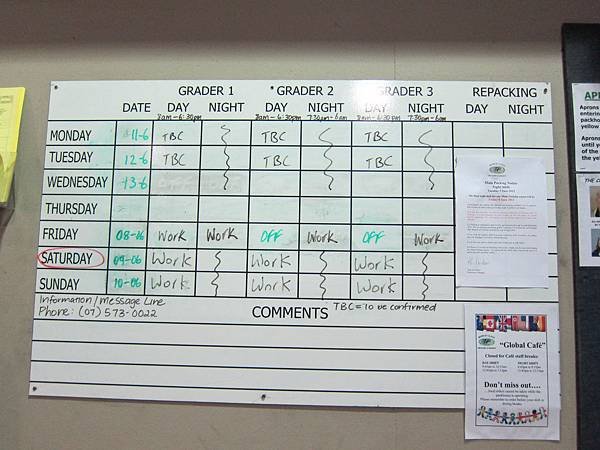 GRADER 1 GRADER 2 GRADER 3 REPACKING
DATE DAY NIGHT DAY NIGHT DAY NIGHT DAY NIGHT
8am-6:30pm 8am-6:30pm 7:30pm-6am 8am-6:30pm 7:30pm-6am
MONDAY 11-6 TBC TBC TBC
TUESDAY 12-6 TBC TBC TBC
WEDNESDAY 13-6
THURSDAY
FRIDAY 08-06 Work Work OFF Work OFF Work
SATURDAY 09-06 Work Work Work
SUNDAY 10-06 Work Work Work
Information/Message Line
Phone: (07) 573-0022
COMMENTS
TBC = to be confirmed
Main Packing Notice
Night Shift
"Global Café"
Closed for Café staff breaks:
DAY SHIFT NIGHT SHIFT
Don't miss out....
Aprons
entering
packho
yellow
Aprons
until y
of the
the ye